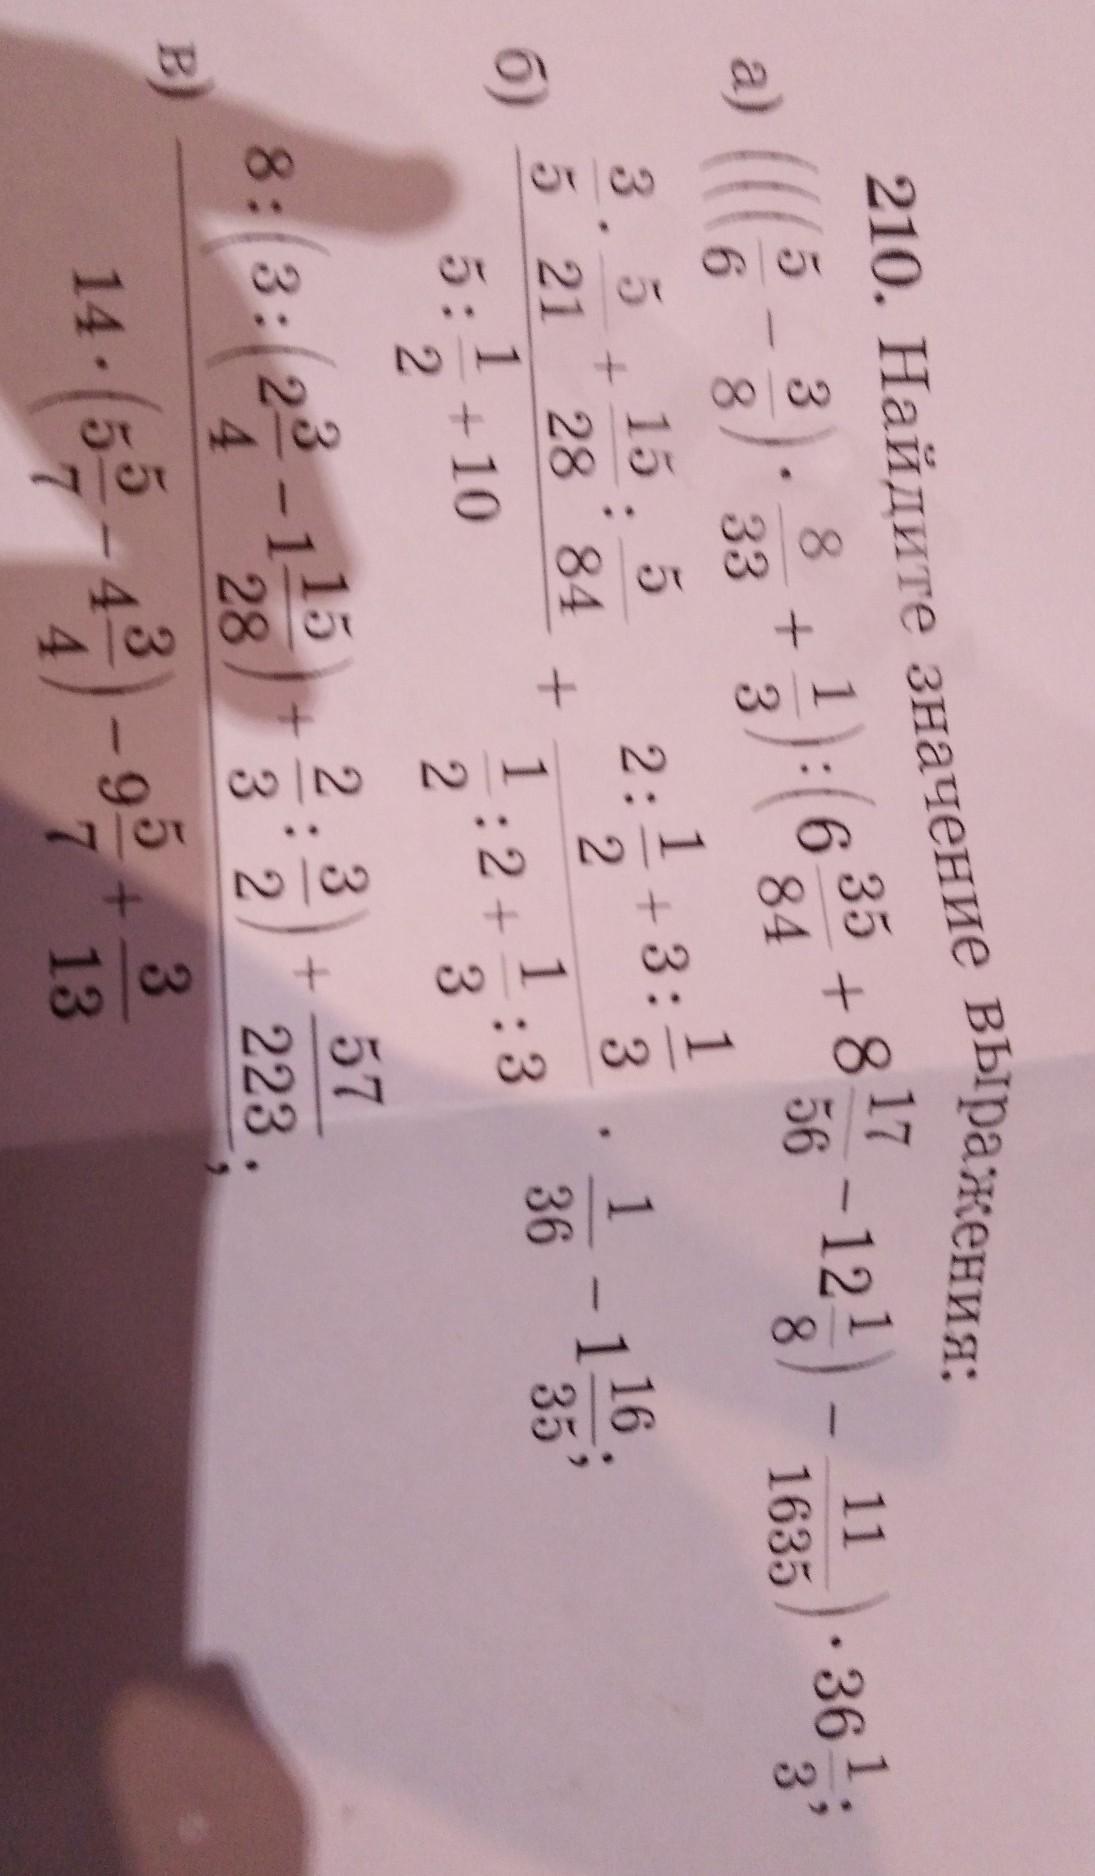 210. Найдите значение выражения:
а) (((5/6 − 3/8) · 8/33 + 1/3) : (6 35/84 + 8 17/56 − 12 1/8) − 11/1635) · 36 1/3;
б) (3/5 · 5/21 + 15/28 : 5/84)/(5 : 1/2 + 10) + (2 : 1/2 + 3 : 1/3)/(1/2 : 2 + 1/3 : 3) · 1/36 − 1 16/35;
в) (8 : (3 : (2 3/4 − 1 15/28) + 2/3 : 3/2) + 57/223)/(14 · (5 5/7 − 4 3/4) − 9 5/7 + 3/13);